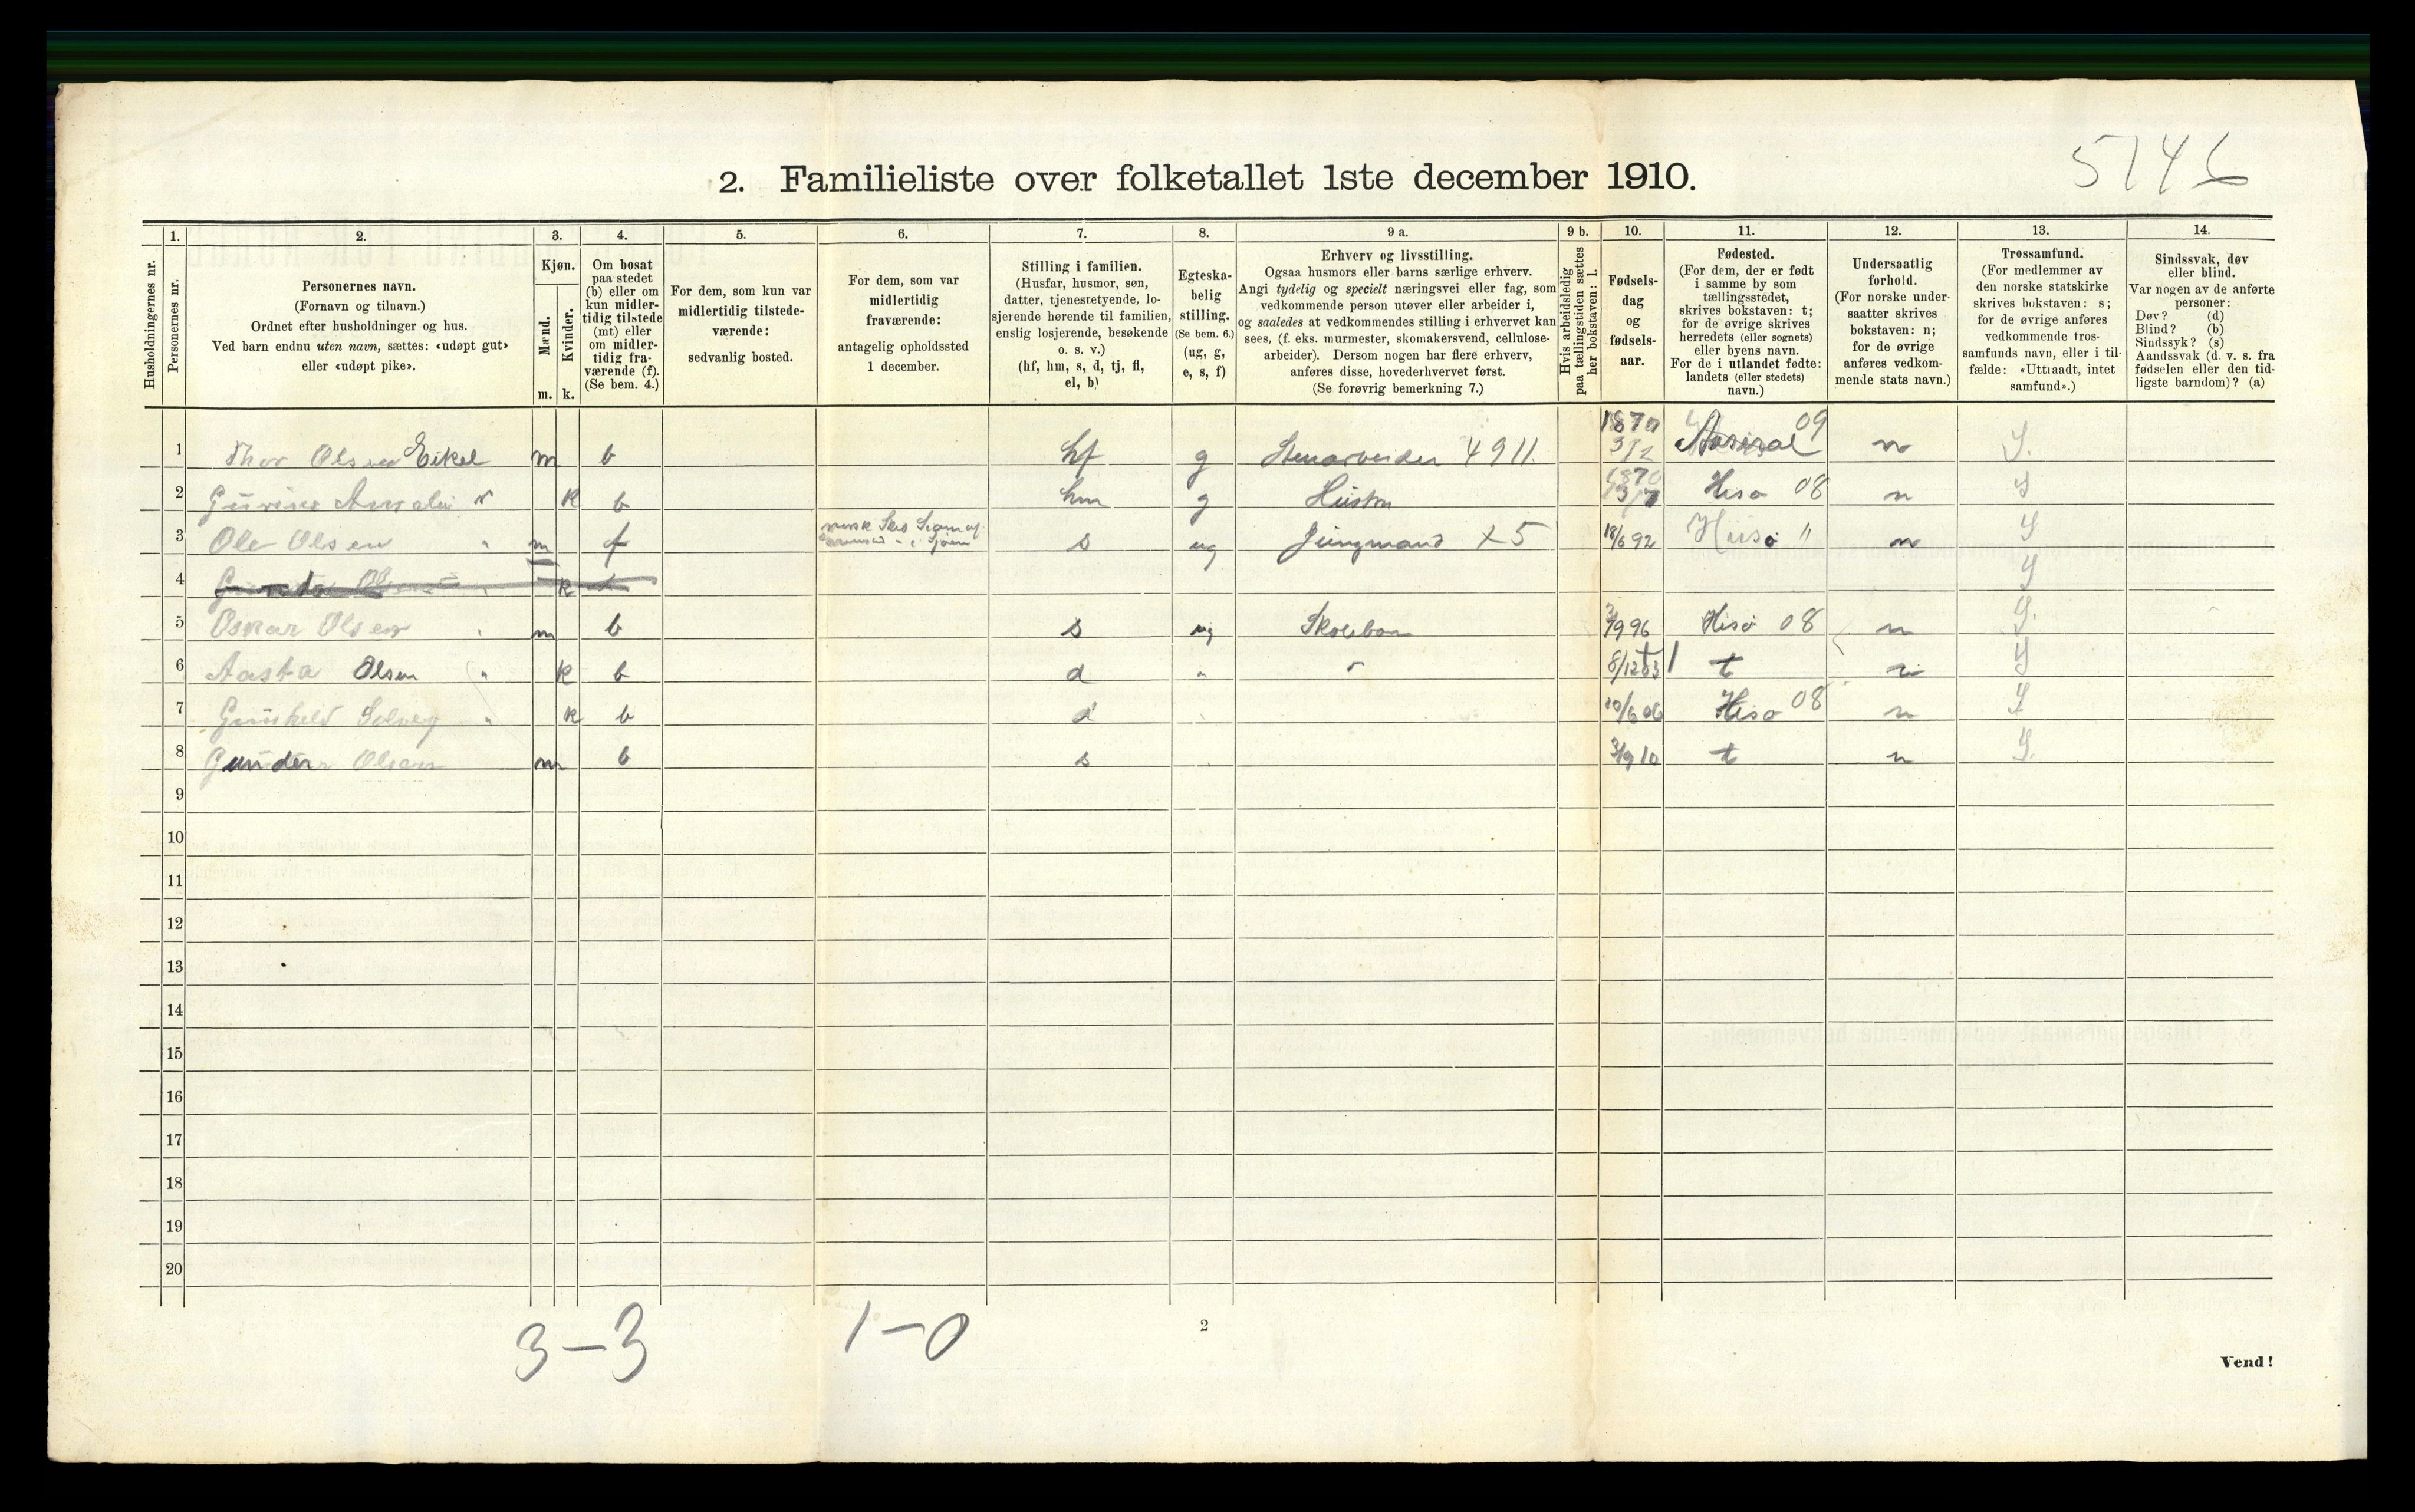 5746
2. Familieliste over folketallet 1ste december 1910.
Husholdningernes nr.
1.
Personernes nr.
2.
Personernes navn.
(Fornavn og tilnavn.)
Ordnet efter husholdninger og hus.
Ved barn endnu uten navn, sættes: «udøpt gut»
eller «udøpt pike».
3.
Kjøn.
Mænd.
Kvinder.
m. k.
4.
Om bosat
paa stedet
(b) eller om
kun midler-
tidig tilstede
(mt) eller
om midler-
tidig fra-
værende (f).
(Se bem. 4.)
5.
For dem, som kun var
midlertidig tilstede-
værende:
sedvanlig bosted.
6.
For dem, som var
midlertidig
fraværende:
antagelig opholdssted
1 december.
7.
Stilling i familien.
(Husfar, husmor, søn,
datter, tjenestetyende, lo-
sjerende hørende til familien,
enslig losjerende, besøkende
o. s. v.)
(hf, hm, s, d, tj, fl,
el, b)
8.
Egteska-
belig
stilling.
(Se bem. 6.)
(ug, g,
e, s, f)
9 a.
Erhverv og livsstilling.
Ogsaa husmors eller barns særlige erhverv.
Angi tydelig og specielt næringsvei eller fag, som
vedkommende person utøver eller arbeider i,
og saaledes at vedkommendes stilling i erhvervet kan
sees, (f. eks. murmester, skomakersvend, cellulose-
arbeider). Dersom nogen har flere erhverv,
anføres disse, hovederhvervet først.
(Se forøvrig bemerkning 7.)
9 b.
Hvis arbeidsledig
paa tællingstiden sættes
her bokstaven: l.
10.
Fødsels-
dag
og
fødsels-
aar.
11.
Fødested.
(For dem, der er født
i samme by som
tællingsstedet,
skrives bokstaven: t;
for de øvrige skrives
herredets (eller sognets)
eller byens navn.
For de i utlandet fødte:
landets (eller stedets)
navn.)
12.
Undersaatlig
forhold.
(For norske under-
saatter skrives
bokstaven: n;
for de øvrige
anføres vedkom-
mende stats navn.)
13.
Trossamfund.
(For medlemmer av
den norske statskirke
skrives bokstaven: s;
for de øvrige anføres
vedkommende tros-
samfunds navn, eller i til-
fælde: «Uttraadt, intet
samfund».)
14.
Sindssvak, døv
eller blind.
Var nogen av de anførte
personer:
Døv? (d)
Blind? (b)
Sindssyk? (s)
Aandssvak (d. v. s. fra
fødselen eller den tid-
ligste barndom)? (a)
1 Thor Olsen Eikel m b hf g Stenarbeider 4911. 1870 3/2 09 n S.
2 k b hm g Hustru 1870 13/7 Hisø 08 n S
3 Ole Olsen " m f s ug Jungmand X5 18/6 92 Hisø " n S
4 Olsen " k S
5 Oskar Olsen " m b s ug Skolebarn 3/9 96 Hisø 08 n S.
6 Aasta Olsen " k b d " " 8/12 t n S
7 Gunhild Solveg " k b d 10/6 06 Hisø 08 n S
8 Gunder Olsen m b s 3/9 10 t n S.
9
10
11
12
13
14
15
16
17
18
19
20
3-3 1-0
2
Vend!